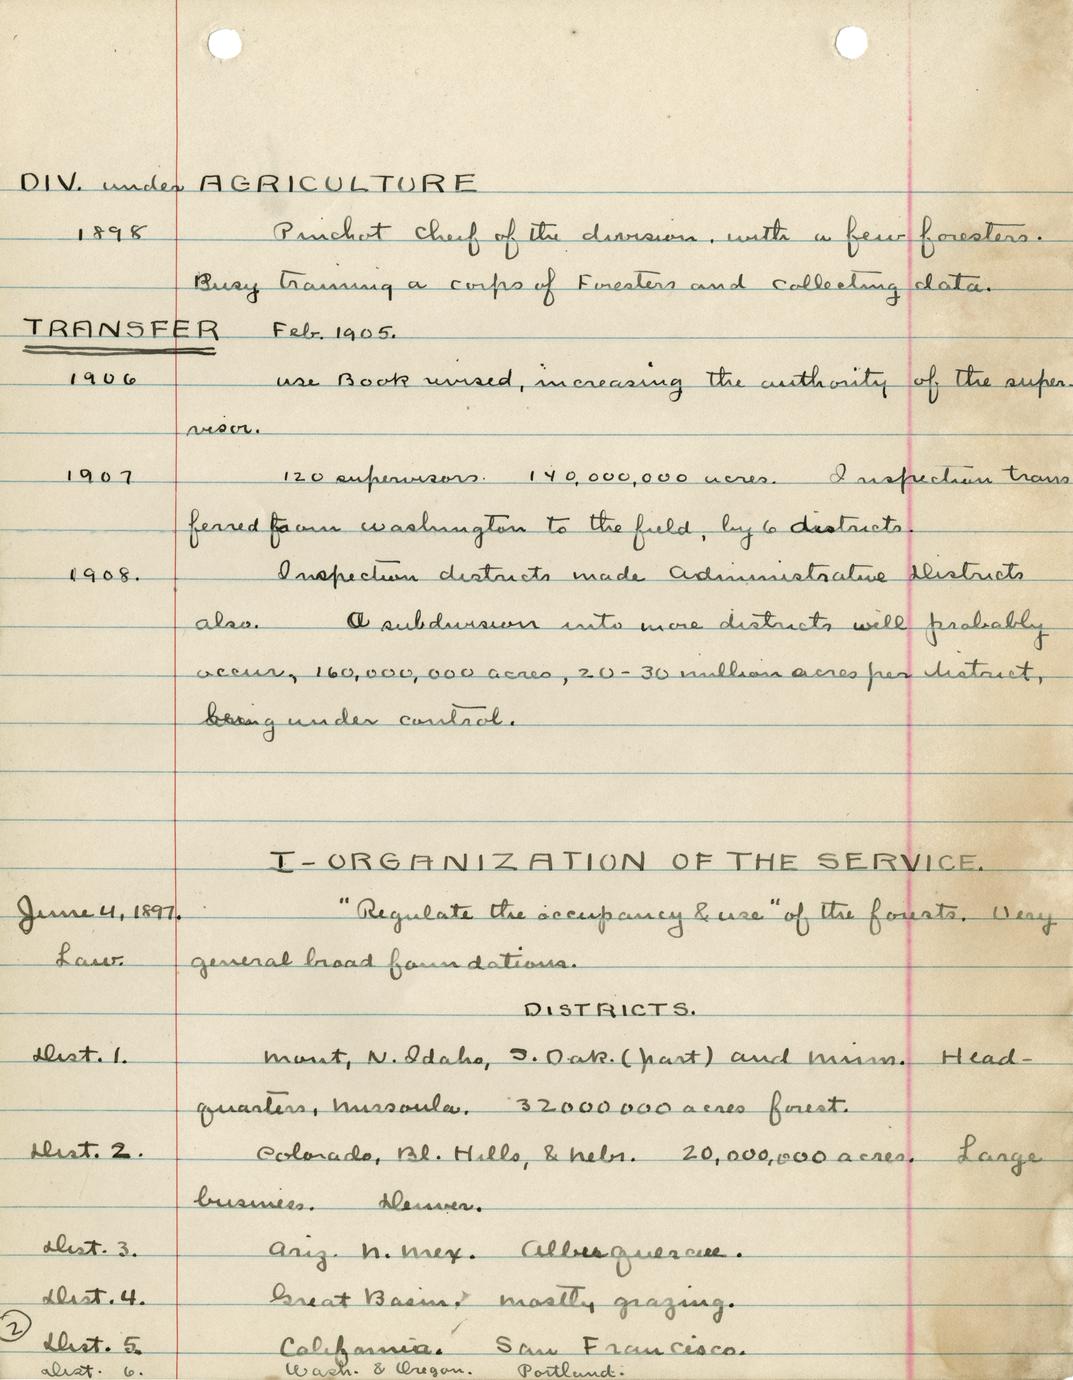 DIV. under AGRICULTURE
1898 Pinchot Cheif of the division, with a few foresters.
Busy training a corps of Foresters and collecting data.
TRANSFER Feb. 1905.
1906 use Book revised, increasing the authority of the super-
visor.
1907 120 supervisors. 140,000,000 acres. Inspection trans
ferred from washington to the field, by 6 districts.
1908. Inspection districts made Administrative Districts
also. A subdivision into more districts will probably
occur, 160,000,000 acres, 20-30 million acres per district,
being under control.
I-ORGANIZATION OF THE SERVICE.
June 4, 1897. "Regulate the occupancy & use" of the forests. Very
Law. general broad foundations.
DISTRICTS.
Dist. 1. Mont, N. Idaho, S. Dak. (part) and Minn. Head-
quarters, Missoula. 32000000 acres forest.
Dist. 2. Colorado, Bl. Hills, & Nebr. 20,000,000 acres. Large
business. Denver.
Dist. 3. Ariz. N. Mex. Alburquerque.
Dist. 4. Great Basin. mostly grazing.
2
Dist. 5. California. San Francisco.
Dist. 6. Wash. & Oregon. Portland.